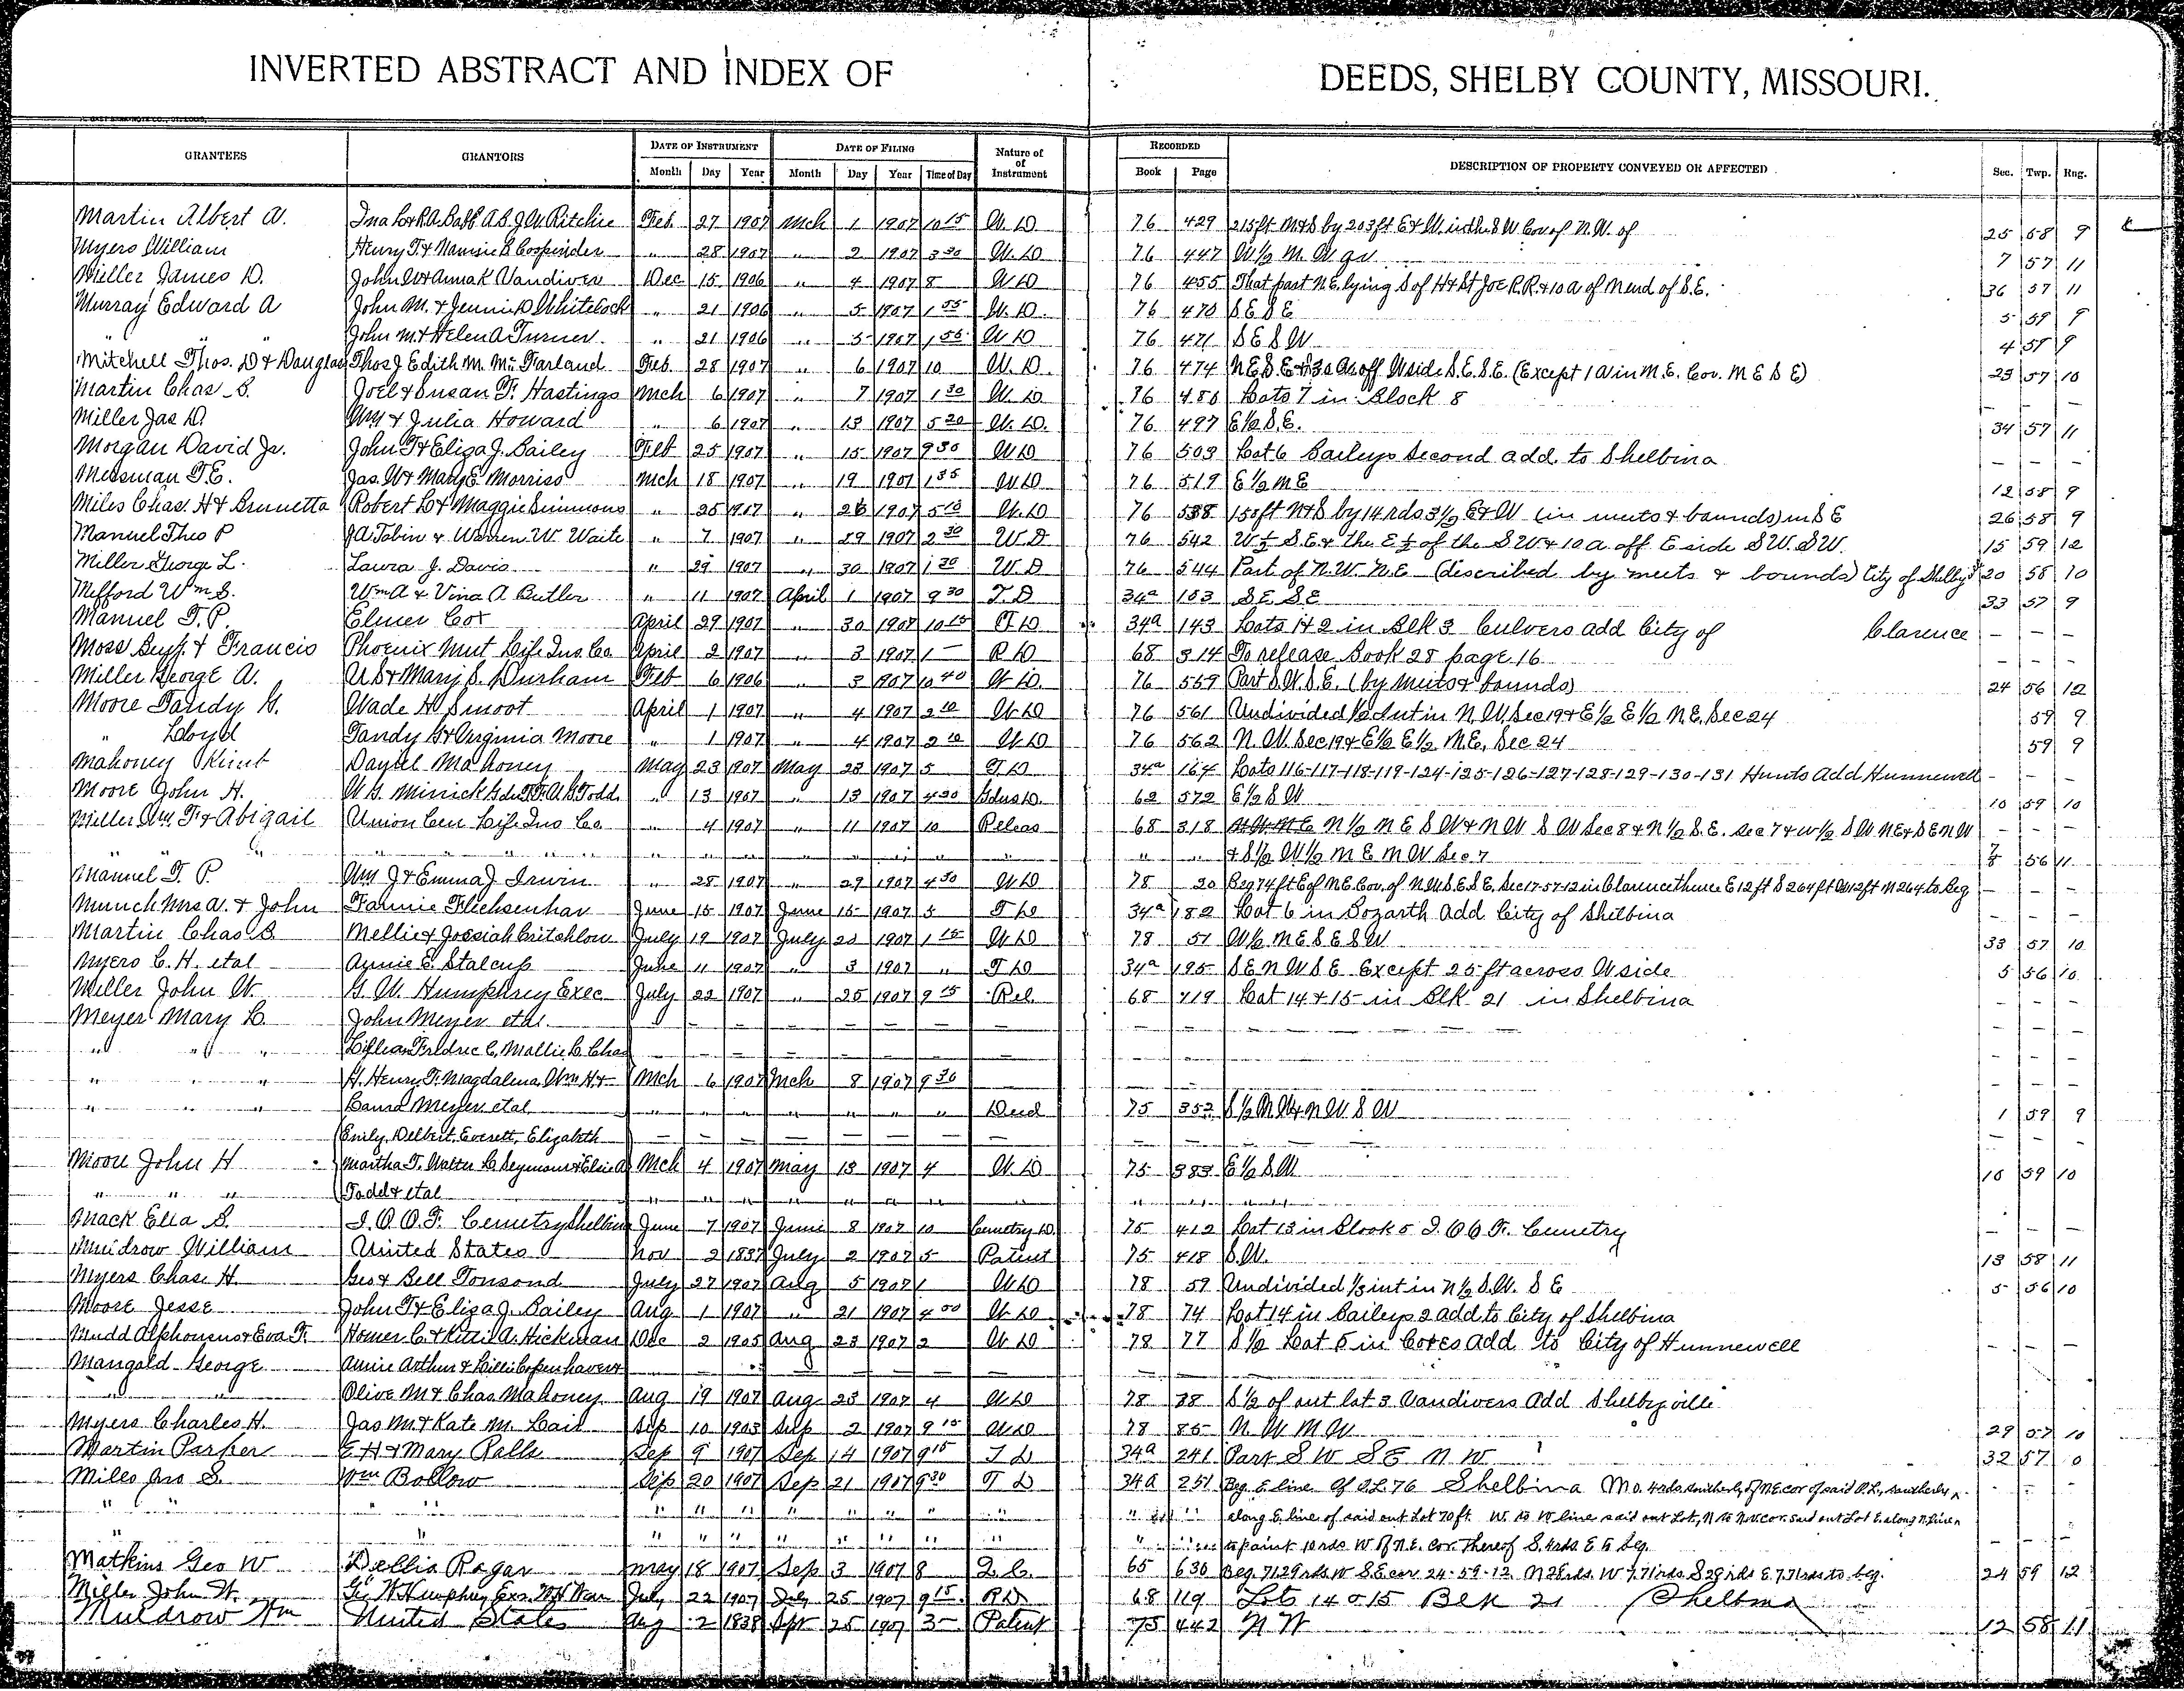 INVERTED ABSTRACT AND INDEX OF DEEDS, SHELBY COUNTY, MISSOURI.
GRANTEES GRANTORS DATE OF INSTRUMENT DATE OF FILING Nature of of Instrument RECORDED DESCRIPTION OF PROPERTY CONVEYED OR AFFECTED Sec. Twp. Rng.
Month Day Year Month Day Year Time of Day Book Page
Martin Albert A. Feb 27 1907 Mch 1 1907 10 15 W. D 76 429 215ft N&S by 203ft E&W. in the S W Cor of N. W. of 25 58 9
Myers William Henry T & Nannie B " 28 1907 " 2 1907 3 30 W. D 76 447 W ½ N. W qr 7 57 11
Miller James D. John W & Anna K Vandiver Dec 15 1906 " 4 1907 8 W D 76 455 That part N.E. lying S of H & St Joe R.R. & 10 a of N end of S.E. 36 57 11
Murray Edward A John M. & Jennie D Whitelock " 21 1906 " 5 1907 1 55 W. D. 76 470 S E S E 5 59 9
" " John M & Helen A Turner " 21 1906 " 5 1907 1 55 W D 76 471 S E S W 4 59 9
Mitchell Thos. D & Douglas Thos J Edith M. McFarland Feb 28 1907 " 6 1907 10 W. D. 76 474 N E S E & 30 a off W side S. E. S. E. (Except 1 a in N.E. Cor. N E S E) 23 57 10
Martin Chas S. Joel & Susan F. Hastings Mch 6 1907 " 7 1907 1 30 W. D 76 480 Lots 7 in Block 8 – – –
Miller Jas D. Wm & Julia Howard " 6 1907 " 13 1907 5 20 W. D. 76 497 E ½ S. E. 34 57 11
Morgan David Jr. John T & Eliza J. Bailey Feb 25 1907 " 15 1907 9 30 W D 76 503 Lot 6 Baileys Second add. to Shelbina – – –
Messman T E. Jas. W & Mary E Morriss Mch 18 1907 " 19 1907 1 35 W D 76 519 E ½ N E 12 58 9
Miles Chas. H & Brunetta Robert L & Maggie Simmons " 25 1907 " 26 1907 5 10 W. D 76 538 150ft N&S by 14 rds 3½ E&W (in meets & bounds) in S E 26 58 9
Manuel Theo P J A Tobin & Warren W Waite " 7 1907 " 29 1907 2 30 W. D 76 542 W ½ S. E & the E ½ of the S W & 10 a. off E side S W. S W. 15 59 12
Miller George L. Laura J. Davis " 29 1907 " 30 1907 1 30 W. D 76 544 Part of N. W. N. E (described by meets & bounds) City of Shelby 20 58 10
Mefford Wm S. Wm A & Vina A. Butler " 11 1907 April 1 1907 9 30 T. D 34a 133 S E S E 33 57 9
Manuel T. P. Elmer Cox April 29 1907 " 30 1907 10 15 T D 34a 143 Lots 1 & 2 in Blk 3 Culvers add City of Clarence – – –
Moss Benj. & Francis Phoenix Mut Life Ins Co April 2 1907 " 3 1907 1 – R D 68 314 To release Book 28 page 16 – – –
Miller George A. & Mary S. Durham Feb 6 1906 " 3 1907 10 40 W D. 76 559 Part S. W. S. E. (by meets & bounds) 24 56 12
Moore Tandy G. Wade H Smoot April 1 1907 " 4 1907 2 10 W D 76 561 Undivided ½ Int in N. W Sec 19 & E ½ E ½ N. E. Sec 24 59 9
" Loyd Tandy G & Virginia Moore " 1 1907 " 4 1907 2 10 W D 76 562 N. W. Sec 19 & E ½ E ½ N. E. Sec 24 59 9
Mahoney Daniel Mahoney May 23 1907 May 23 1907 5 T D 34a 164 Lots 116-117-118-119-124-125-126-127-128-129-130-131 Hunts Add Hunnewell – – –
Moore John H. W. G. Minick " 13 1907 " 13 1907 4 30 Gdns D. 62 572 E ½ S W 10 59 10
Miller Wm. F & Abigail Union Cen Life Ins Co " 4 1907 " 11 1907 10 Releas 68 318 N ½ N E S W & N W S W Sec 8 & N ½ S. E. Sec 7 & W ½ S W N E & S E N W – – –
" " " " " " " " " " " " " " " & S ½ W ½ N E N W Sec 7 7 8 56 11
Manuel T. P. Wm J & Emma J Irwin " 28 1907 " 29 1907 4 30 W D 78 20 Beg 74ft E of N. E. Cor. of N W S. E S E. Sec 17-57-12 in Clarence thence E 12ft S 264ft W 12ft N 264 to Beg – – –
Munch Mrs A. & John Fannie June 15 1907 June 15 1907 5 T D 34a 182 Lot 6 in Bozarth Add City of Shelbina – – –
Martin Chas B Mellie & Josiah Critchlow July 19 1907 July 20 1907 1 15 W D 78 51 W ½ N E S E S W 33 57 10
Myers C. H. etal Annie E. Stalcup June 11 1907 " 3 1907 " T D 34a 195 S E N W S E Except 25 ft across W side 5 56 10
Miller John W. G. W. Humphrey Exec July 22 1907 " 25 1907 9 15 Rel 68 119 Lot 14 & 15 in Blk 21 in Shelbina – – –
Meyer Mary L. John Meyer etal. – – –
" " " Lillian Fredric C, Mollie L. Chas – – –
" " " H. Henry T. Magdalena Wm H & Mch 6 1907 Mch 8 1907 9 30 – – –
" " " Laura Meyer etal " " " " " " " Deed 75 352 S ½ N W & N W S W 1 59 9
Emily, Delbert, Everett, Elizabeth – – –
Moore John H Martha T. Walter L Seymour & Elsie A Mch 4 1907 May 13 1907 4 W D 75 383 E ½ S W 10 59 10
" " " Todd & etal " " " " " " " " " "
Mack Ella S. I. O. O. F. Cemetry Shelbina June 7 1907 June 8 1907 10 Cemetry D. 75 412 Lot 13 in Block 5 I. O O F. Cemetry – – –
Muldrow William United States Nov 2 1837 July 2 1907 5 Patent 75 418 S. W. 13 58 11
Myers Chase H. Geo & Bell Tonsond July 27 1907 Aug 5 1907 1 W D 78 59 Undivided ⅓ int in N ½ S. W. S E 5 56 10
Moore Jesse John T & Eliza J. Bailey Aug 1 1907 " 21 1907 4 00 W D 78 74 Lot 14 in Baileys 2 add to City of Shelbina – – –
Mudd Alphonsus & Eva F. Homer C. & Kittie A. Hickman Dec 2 1905 Aug 23 1907 2 W D 78 77 S ½ Lot 5 in Coxes add to City of Hunnewell – – –
Mangold George Annie Arthur & Lillie Copenhaver &
" Olive M & Chas Mahoney Aug 19 1907 Aug 23 1907 4 W D 78 38 S ½ of out lot 3 Vandivers Add Shelbyville
Myers Charles H. Jas M. & Kate M. Lair Sep 10 1903 Sep 2 1907 9 15 W D 78 85 N. W N W 29 57 10
Martin Parker E H & Mary Ralls Sep 9 1907 Sep 14 1907 9 15 T D 34a 241 Part S W S E N W 32 57 0
Miles Jno S. Wm Bollow Sep 20 1907 Sep 21 1907 9 30 T D 34a 251 Beg E line Of O L 76 Shelbina Mo. 4 rds southerly of N E cor of said O. L., southerly
" " " " " " " " " " " " along E. line of said out Lot 70 ft W. to W line said out Lot, N to N.W. cor. said out Lot E. along N line
" " " " " " " " " " to point 10 rds W of N. E. cor. Thereof S. 4 rds E to beg. – –
Matkins Geo W Dellia Ragar May 18 1907 Sep 3 1907 8 Q. C. 65 630 Beg. 71.29 rds W S E cor. 24-59-12. N 28 rds. W 7.71 rds. S 28 rds E. 7.71 rds to beg. 24 59 12
Miller John W. Geo W Humphrey Exr. July 22 1907 July 25 1907 9 15 R D 68 119 Lots 14 & 15 Blk 21 Shelbina
Muldrow Wm United States Aug 2 1838 Spt 25 1907 3 – Patent 75 442 N W 12 58 11